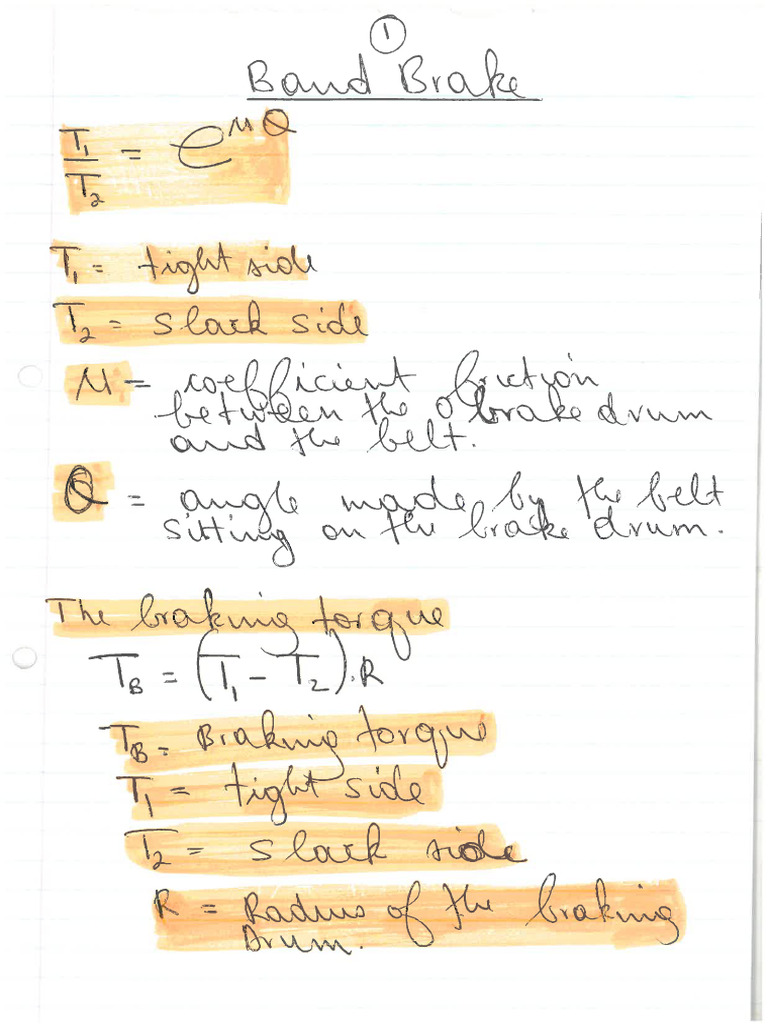 1
Band Brake
T₁/T₂ = e^μθ
T₁ = tight side
T₂ = slack side
μ = coefficient friction
between the brake drum
and the belt.
θ = angle made by the belt
sitting on the brake drum.
The braking torque
T_B = (T₁ - T₂).R
T_B = Braking torque
T₁ = tight side
T₂ = slack side
R = Radius of the braking
Drum.